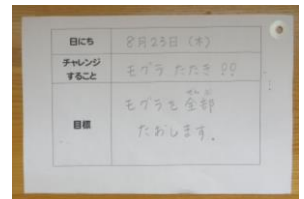 日にち 8月23日(木)
チャレンジ
すること
モグラ たたき !!
目標
ぜんぶ
モグラを全部
たおします。